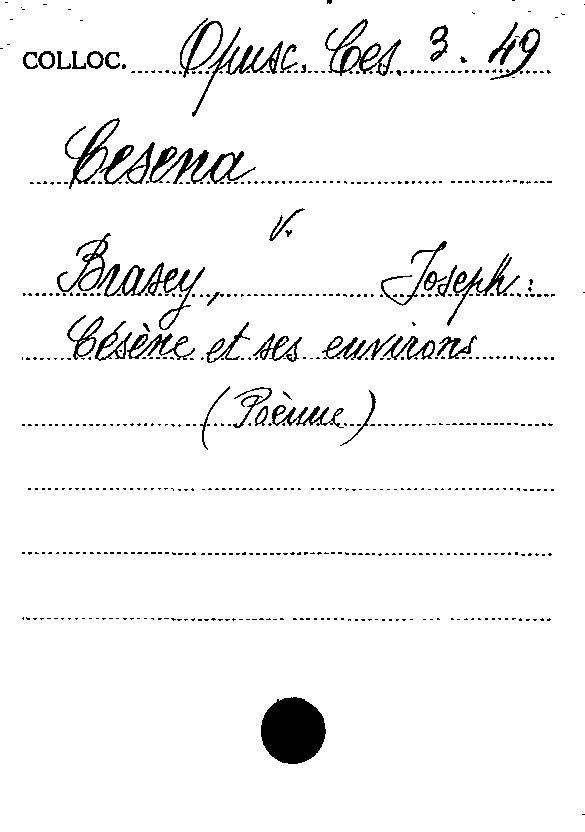 COLLOC. Opusc. Ces. 3. 49
Cesena
v.
Brasey, Joseph:
Césène et ses environs
(Poème)